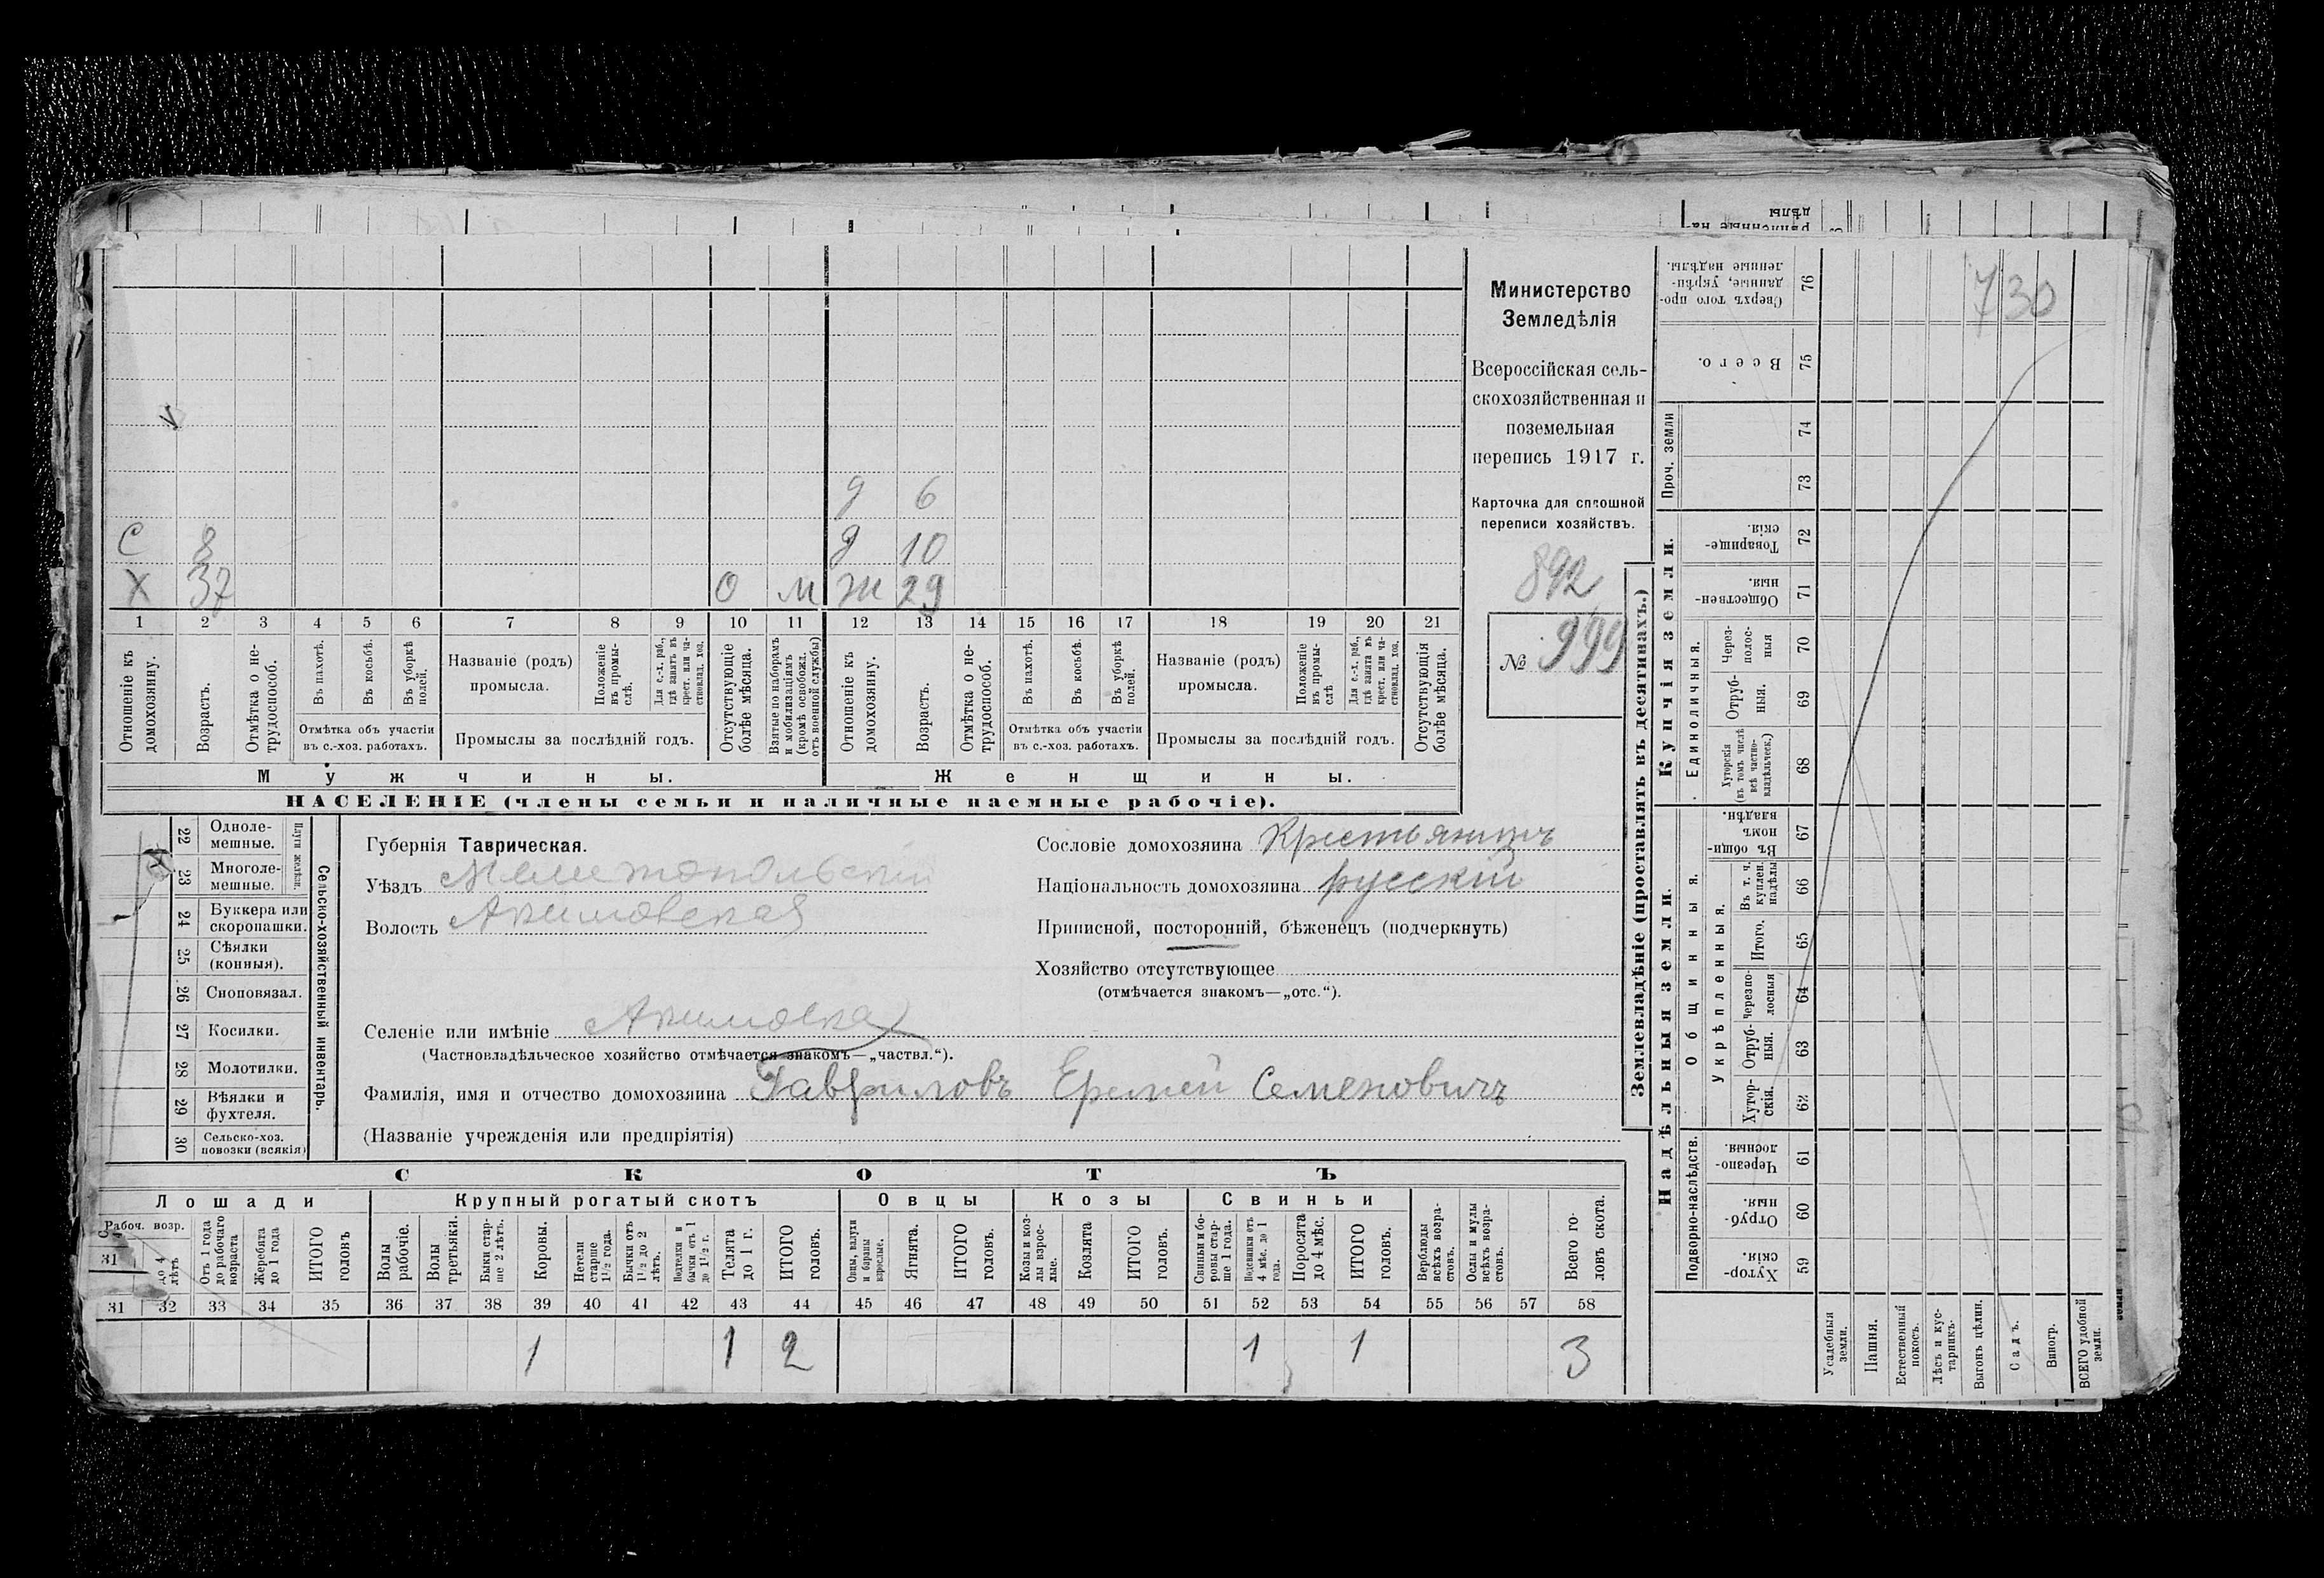 730
Министерство
Земледѣлія
Всероссійская сель-
скохозяйственная и
поземельная
перепись 1917 г.
Карточка для сплошной
переписи хозяйствъ.
892
№ 999
д 6
С 8 д 10
Х 37 О М Ж 29
1 2 3 4 5 6 7 8 9 10 11 12 13 14 15 16 17 18 19 20 21
Отношеніе къ домохозяину.
Возрастъ.
Отмѣтка о не-трудоспособ.
Въ пахотѣ.
Въ косьбѣ.
Въ уборкѣ полей.
Отмѣтка объ участіи
въ с.-хоз. работахъ.
Названіе (родъ)
промысла.
Положеніе въ промы-слѣ.
Для с.-х. раб., гдѣ занятъ въ крест. или ча-стновлад. хоз.
Промыслы за послѣдній годъ.
Отсутствующіе болѣе мѣсяца.
Взятые по наборамъ и мобилизаціямъ (кромѣ освобожд. отъ военной службы)
Отношеніе къ домохозяину.
Возрастъ.
Отмѣтка о не-трудоспособ.
Въ пахотѣ.
Въ косьбѣ.
Въ уборкѣ полей.
Отмѣтка объ участіи
въ с.-хоз. работахъ.
Названіе (родъ)
промысла.
Положеніе въ промы-слѣ
Для с.-х. раб., гдѣ занята въ крест. или ча-стновлад. хоз.
Промыслы за послѣдній годъ.
Отсутствующія болѣе мѣсяца.
Мужчины. Женщины.
НАСЕЛЕНІЕ (члены семьи и наличные наемные рабочіе).
Сельско-хозяйственный инвентарь.
Плуги желѣзн.
22 Одноле-мешные.
23 Многоле-мешные.
24 Буккера или скоропашки.
25 Сѣялки (конныя).
26 Сноповязал.
27 Косилки.
28 Молотилки.
29 Вѣялки и фухтеля.
30 Сельско-хоз. повозки (всякія)
Губернія Таврическая.
Уѣздъ Мелитопольскій
Волость Акимовская
Сословіе домохозяина Крестьянинъ
Національность домохозяина русскій
Приписной, посторонній, бѣженецъ (подчеркнуть)
Хозяйство отсутствующее
(отмѣчается знакомъ—„отс.“).
Селеніе или имѣніе Акимовка
(Частновладѣльческое хозяйство отмѣчается знакомъ—„частвл.“).
Фамилія, имя и отчество домохозяина Гавриловъ Еремей Семеновичъ
(Названіе учрежденія или предпріятія)
СКОТЪ
Лошади Крупный рогатый скотъ Овцы Козы Свиньи
Рабоч. возр.
31
до 4 лѣтъ
Отъ 1 года до рабочаго возраста
Жеребята до 1 года
ИТОГО головъ
Волы рабочіе.
Волы третьяки.
Быки стар-ше 2 лѣтъ.
Коровы.
Нетели старше 1½ года.
Бычки отъ 1½ до 2 лѣтъ.
Подтелки и бычки отъ 1 до 1½ г.
Телята до 1 г.
ИТОГО головъ.
Овцы, валухи и бараны взрослые.
Ягнята.
ИТОГО головъ.
Козы и коз-лы взрос-лые.
Козлята
ИТОГО головъ.
Свиньи и бо-ровы стар-ше 1 года.
Подсвинки отъ 4 мѣс. до 1 года.
Поросята до 4 мѣс.
ИТОГО головъ.
Верблюды всѣхъ возра-стовъ.
Ослы и мулы всѣхъ возра-стовъ.
Всего го-ловъ скота.
31 32 33 34 35 36 37 38 39 40 41 42 43 44 45 46 47 48 49 50 51 52 53 54 55 56 57 58
1 1 2 1 1 3
Землевладѣніе (проставлять въ десятинахъ.)
Купчія земли.
Проч. земли
Единоличныя.
Сверхъ того про-данные, укрѣп-ленные надѣлы. 76
Всего. 75
74
73
Товарище-скія. 72
Обществен-ныя. 71
Через-полос-ныя 70
Отруб-ныя. 69
Хуторскія (въ томъ числѣ всѣ частно-владѣльческ.) 68
Надѣльныя земли.
Общинныя.
Укрѣпленныя.
Въ общи-номъ владѣн. 67
Въ т. ч. куплен. надѣлы 66
Итого. 65
Черезпо-лосныя 64
Отруб-ныя. 63
Хутор-скія. 62
Подворно-наслѣдств.
Черезпо-лосныя. 61
Отруб-ныя. 60
Хутор-скія. 59
Усадебныя земли.
Пашня.
Естественный покосъ.
Лѣсъ и кус-тарникъ.
Выгонъ цѣлин.
Садъ.
Виногр.
ВСЕГО удобной земли.